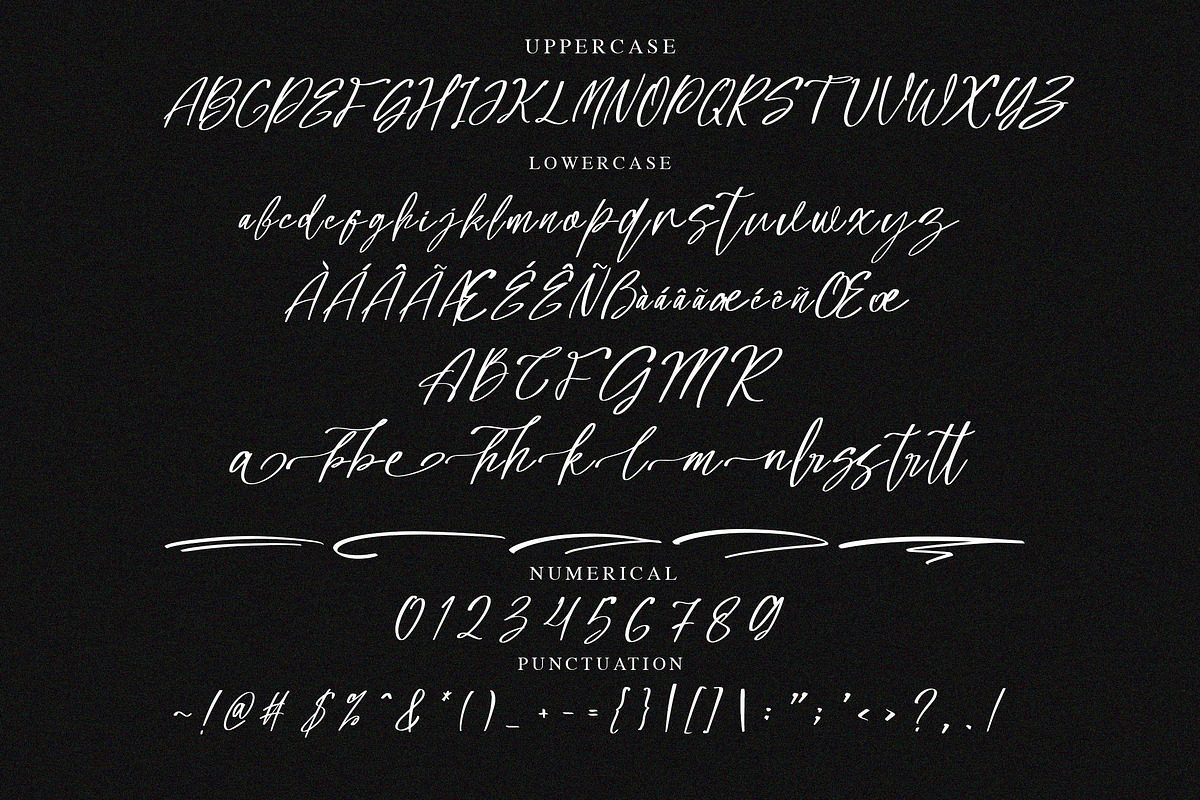 UPPERCASE
ABCDEFGHIJKLMNOPQRSTUVWXYZ
LOWERCASE
abcdefghijklmnopqrstuvwxyz
ÀÁÂÃÆÉÊÑBàáâãæéêñŒœ
ABCFGMR
abbehhklmnlrssstrtt
NUMERICAL
0123456789
PUNCTUATION
~!@#$%^&*()_+-={}|[]\:";'<>?,./